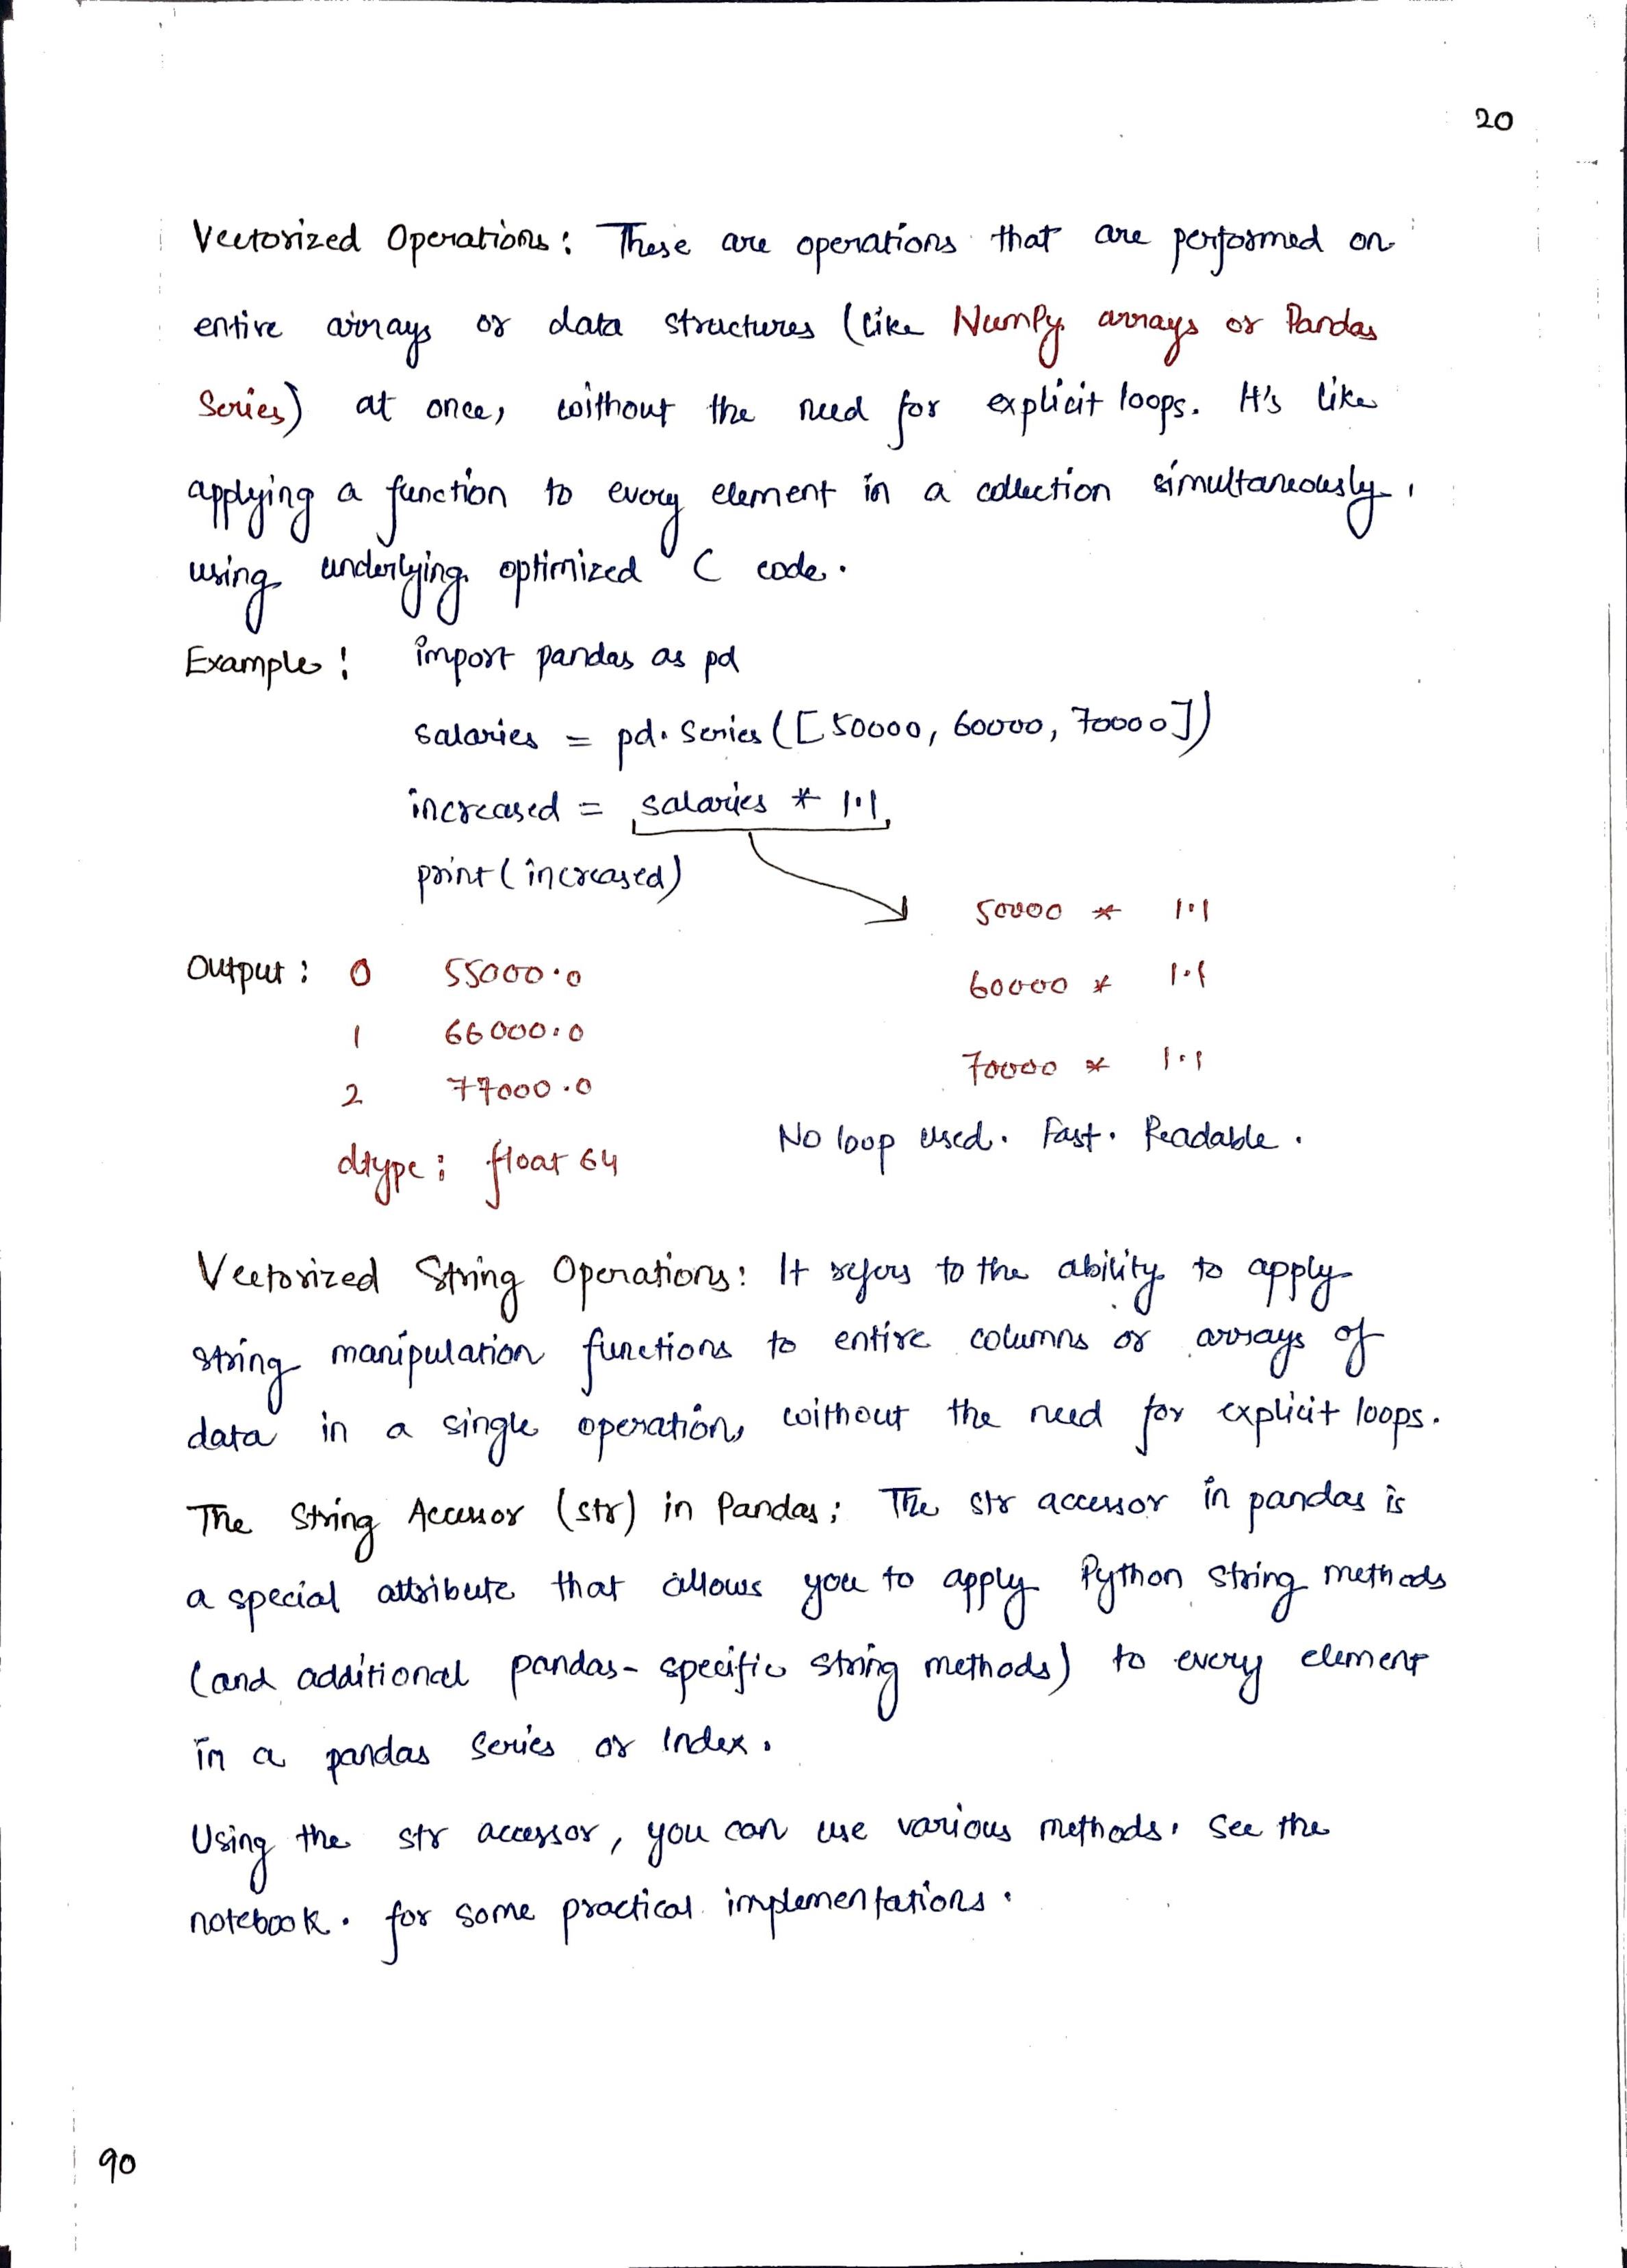 20
Vectorized Operations: These are operations that are performed on
entire arrays or data structures (like NumPy arrays or Pandas
Series) at once, without the need for explicit loops. It's like
applying a function to every element in a collection simultaneously,
using underlying optimized C code.
Example: import pandas as pd
salaries = pd.Series([50000, 60000, 70000])
increased = salaries * 1.1
print(increased)
50000 * 1.1
Output: 0 55000.0
60000 * 1.1
1 66000.0
70000 * 1.1
2 77000.0
No loop used. Fast. Readable.
dtype: float64
Vectorized String Operations: It refers to the ability to apply
string manipulation functions to entire columns or arrays of
data in a single operation, without the need for explicit loops.
The String Accessor (str) in Pandas: The str accessor in pandas is
a special attribute that allows you to apply Python string methods
(and additional pandas-specific string methods) to every element
in a pandas Series or Index.
Using the str accessor, you can use various methods. See the
notebook. for some practical implementations.
90